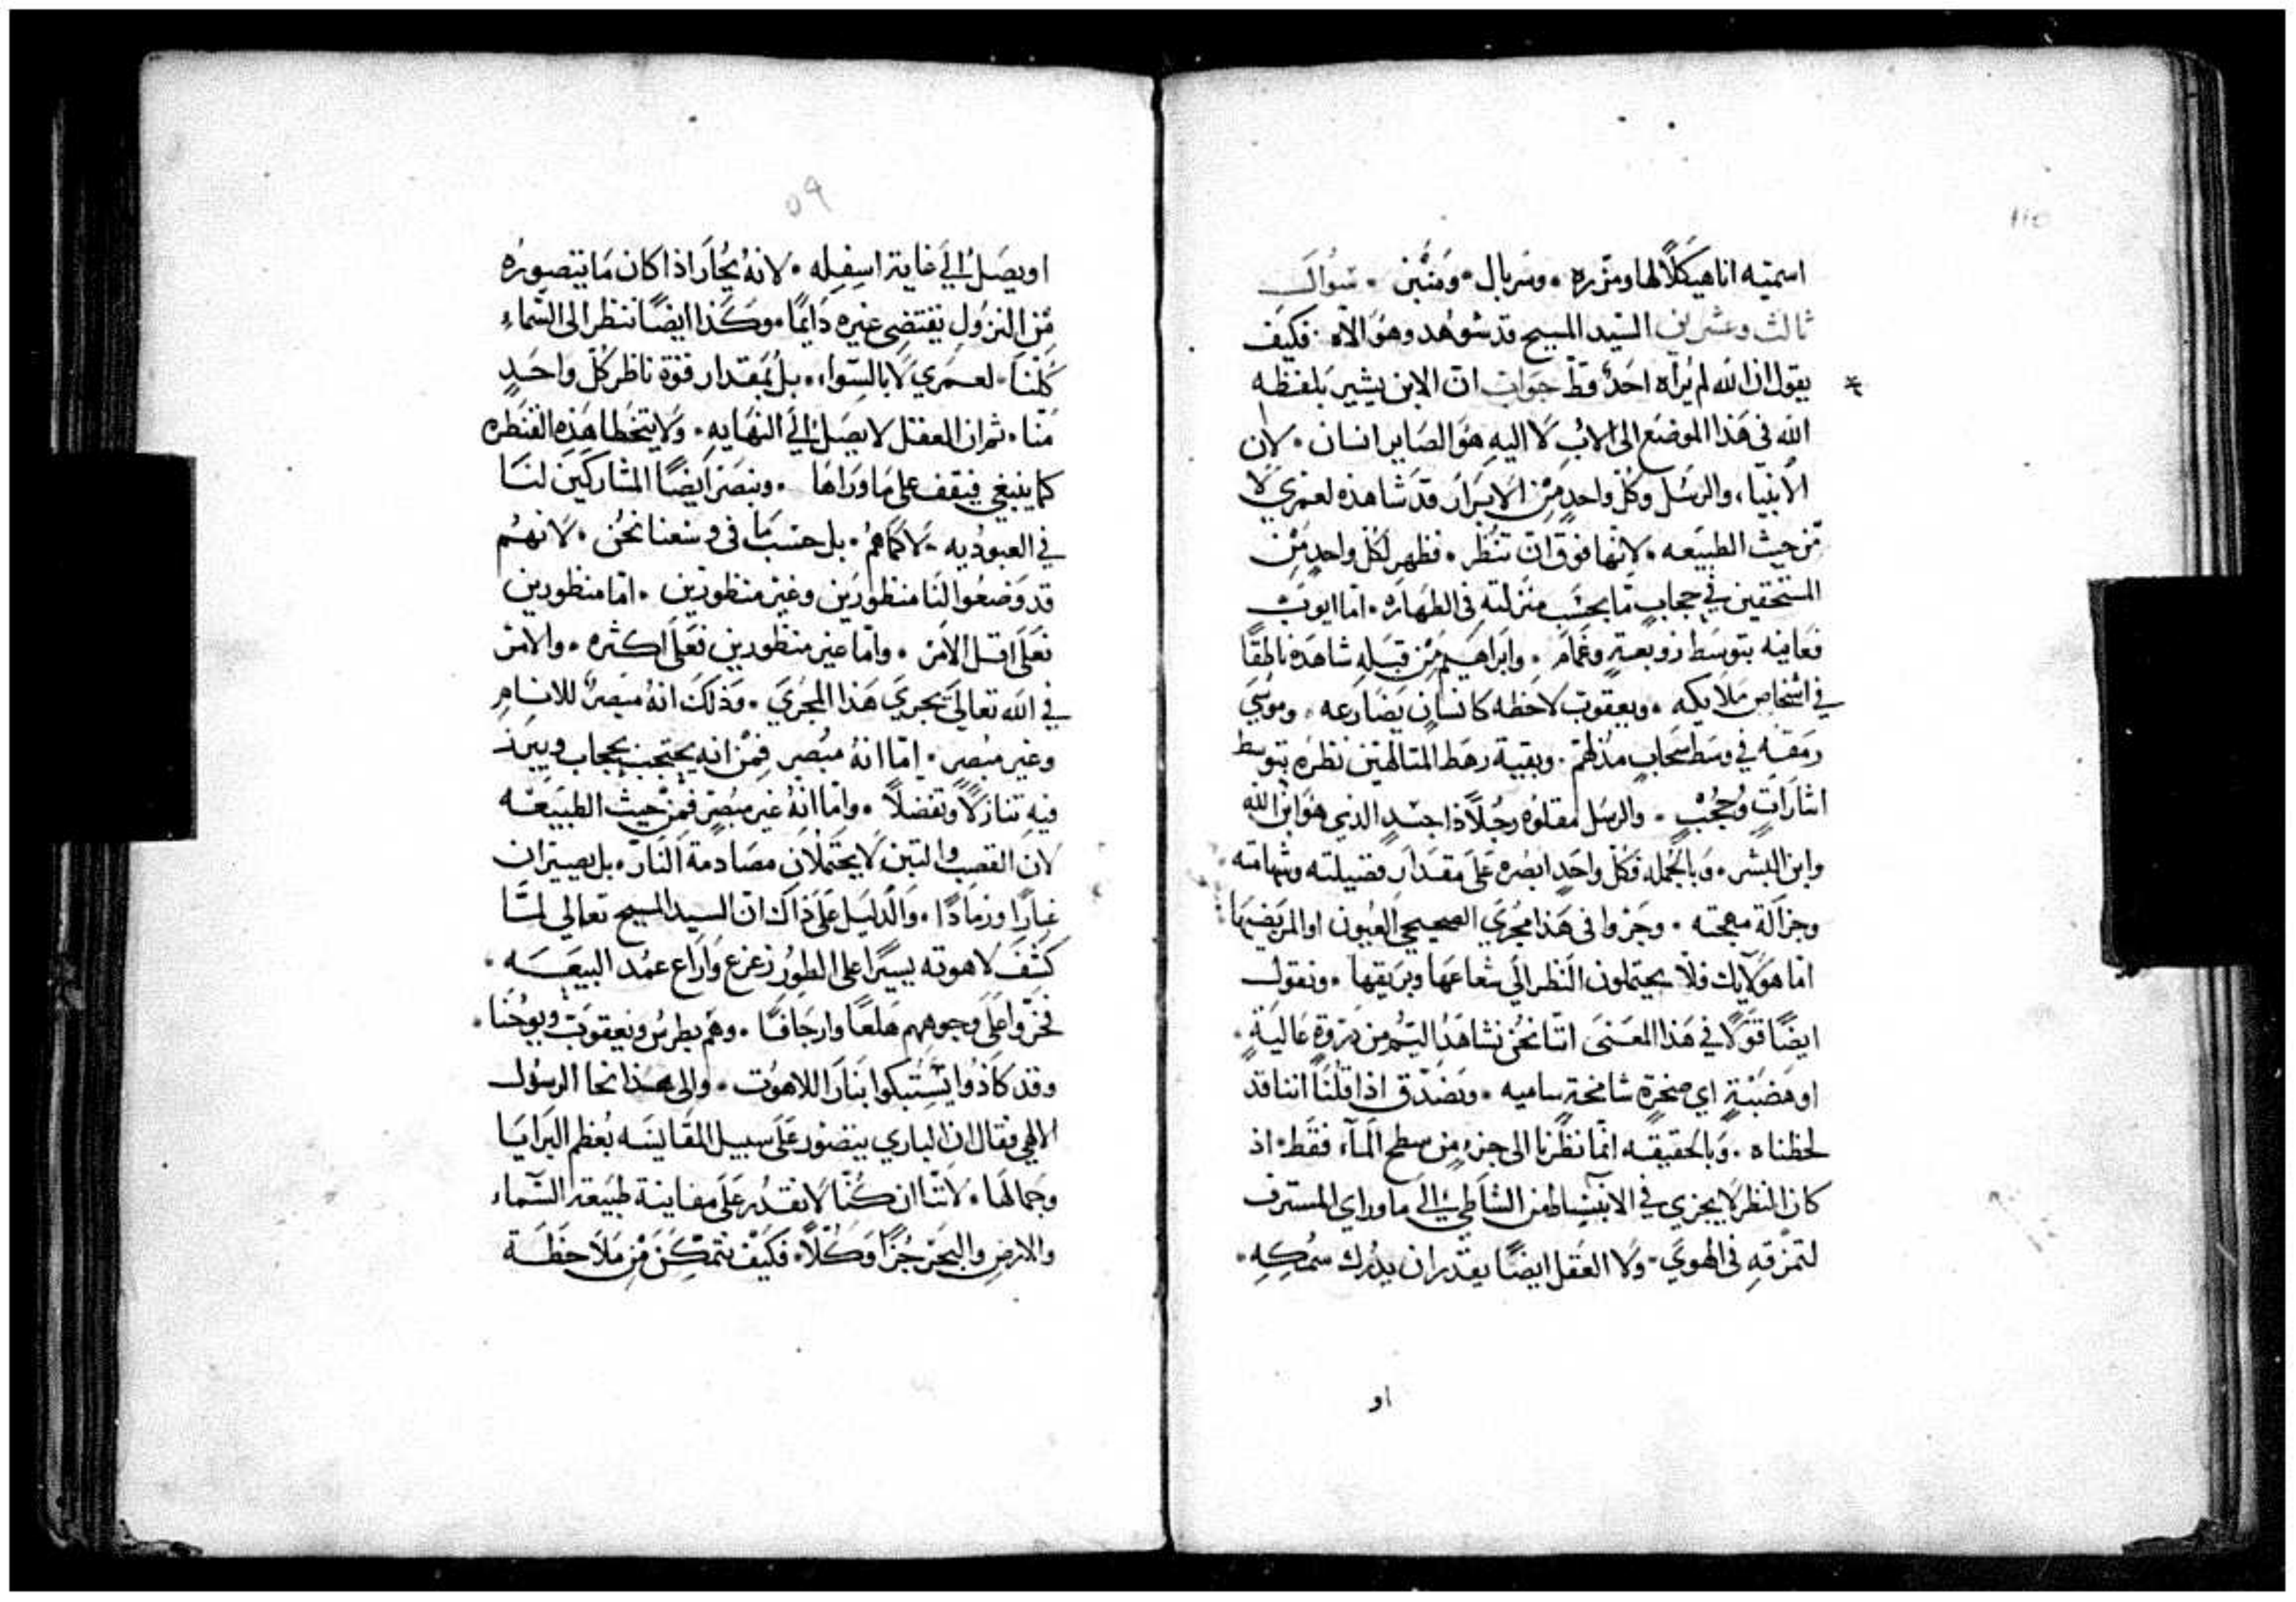 اسميته انا هيكلًا لها ومئزره • وسربال • ومنبّن • سُوالــ
ثالث وعشرين السّيد المسيح قد شوهد وهوَ الاه • فكيَف
يقول ان الله لم يُراه احَدٌ قطّ جوابــ ان الابن يشير بلفظه
الله في هَذا الموضع الى الابُ لَا اليهِ هوَ الصَاير انسان • لان
الأنبيَا، والرسُل وكُل واحدٍ مِن الابرَار قد شاهده لعمري لا
مّن حيث الطبيَعه • لانها فوق ان تنُظر • فظهر لكُل واحدٍ مّن
المستحقين في حجابٍ مّا بحسَب منزلتهِ في الطهَاره • امّا ايوبْ
فعاينه بتوسَط زوبعةٍ وغمَام • وابرَاهيم مّن قبَلهِ شاهَده ناطقًا
في اشخاص مَلايكه • ويعقوبَ لاحظه كانسان يُصَارَعه • ومُوسَي
رمَقه في وسَط سحَابٍ مدْلهمّ • وبقية رهَط المتالهّين نظرَه بتوسط
اشارَاتٍ وحُجُبٍ • والرسُل مقلوُه رجُلًا ذا جسَدٍ الذي هوَ ابْن الله
وابن البشر • وَبالجُمله فكُل واحَدٍ ابصَره عَلَى مقدَار فضيلته وشهامته
وجزالَة مهجته • وجرَوا في هَذا مجرَي الصحيحي العُيون او المريضيها
امّا هَولايك فلَا يحتملون النَظر الَي شعاعهَا وبريقها • ونقولــ
ايضًا قولًا في هَذا المعَنىَ اننا نحُن نشاهَد اليَمّ من ذروةٍ عَاليَةٍ •
او هَضَبَةٍ اي صَخرةٍ شامخةٍ ساميه • ونَصَدّق اذا قلنَا اننا قد
لحظناه • وَبالحقيقه انمّا نظَرنا الى جزءٍ مِن سطح المآء فقَط • اذ
كان النظر لَا يجزي في الانبسَاط من الشَاطيِ الَي ماوراي المستشرف
لتمزّقهِ في الهوَي • ولا العَقل ايضًا يقدر ان يدُرك سُمُكهِ •
او
او يصَل الَي غاية اسفِله • لانهُ يُحَار اذا كان مَا يتصورُه
مّن النزول يقتضي غيرهِ دَايمًا • وكَذا ايضًا ننظر الى السّماءِ
كُلنا • لعمَري لَا بالسّواء • بل بمقدار قوّة ناظر كُل واحَدٍ
منّا • ثم ان العقل لا يصَل الَي النهَايه • ولَا يتخَطا هَذه القنَطره
كما ينبغي فيقف على مَا ورَاها • ونبصَر ايضًا المشاركيَن لنَا
في العبوديه • لَا كمَاهُم • بل حسَب مَا في وسَعنا نحُن • لانهُم
قد وَضعُوا لنَا منظورَين وغيَر منظورَين • امّا منظورين
فعَلى اقل الأمَر • وامّا غير منظورين فعَلى اكثره • والامَر
في الله تعالَى يجريَ هَذا المجريَ • وَذلكَ انهُ مبصَرٌ للانام
وغير مبُصر • امّا انهُ مبُصر فِمّن انه يحتجب بحجاب ويبرَز
فيهِ تنازلًا وتفضلًا • وامّا انهُ غير مبصرٍ فمن حيثُ الطبيَعَه
لان القصب والتبن لَا يحتملان مصَادمة النار • بل يصيران
غبارًا ورَمادًا • والَدليَل عَلَى ذاكَ ان السيد المسيح تعالي لمّا
كَشَفَ لاهوته يسيرًا على الطُور زعزع وَارَاع عمُد البيعَــه •
فخرّوا عَلَى وجوههم هَلعًا وارجَافًا • وهَم بطرسُ ويعقوبَ ويوحُنا •
وقد كَادُوا يشَتبكوا بنَار اللاهوُت • والى هَذا نحا الرسُولــ
الالهي فقال ان الباري يتصَور عَلَى سبيل المقَايسَه بُعظم البرَايَا
وجَمالهَا • لاننّا ان كُنّا لَا نقدُر عَلَى معَاينة طبَيعة السّماء
والارض والبحَر جُزءًا وَكُلًا • فكَيفَ نتمكّن مّن مَلاحظَــة
٥٩